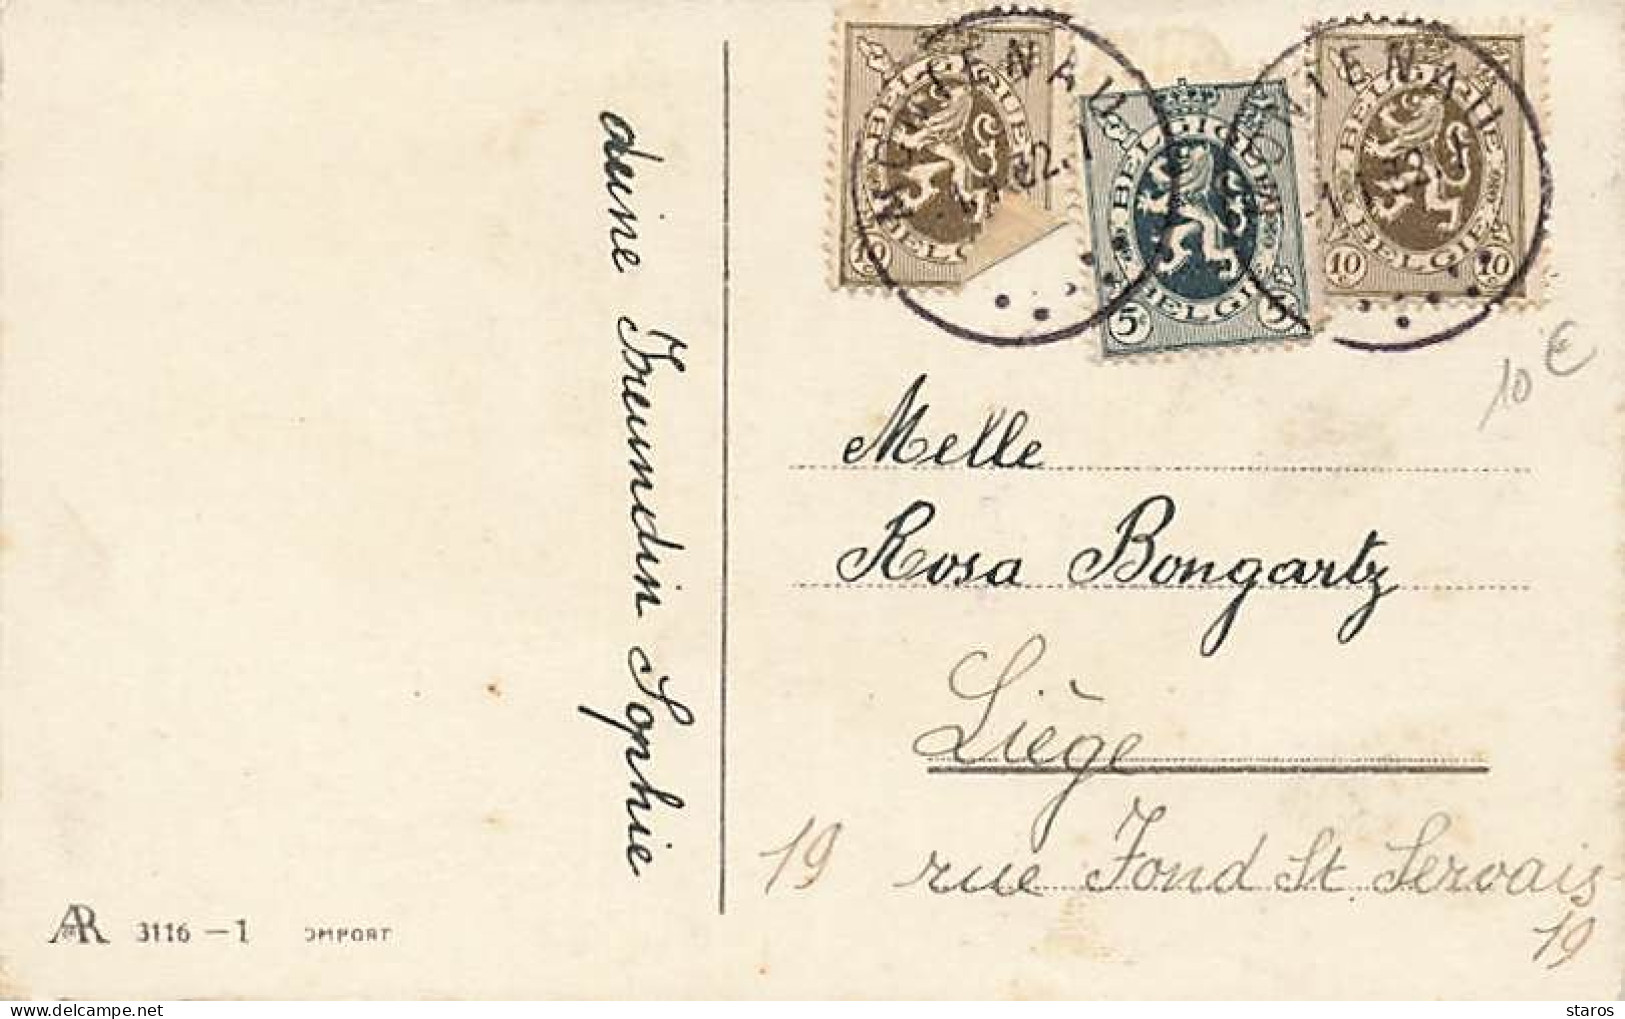 deine Freundin Sophie
BELGIQUE
BELGIE
10
BELGIQUE
BELGIE
5 5
BELGIQUE
BELGIE
10 10
10 €
Melle
Rosa Bongartz
Liège
19 rue Fond St Servais
19
AR 3116 - 1
delcampe.net
staros